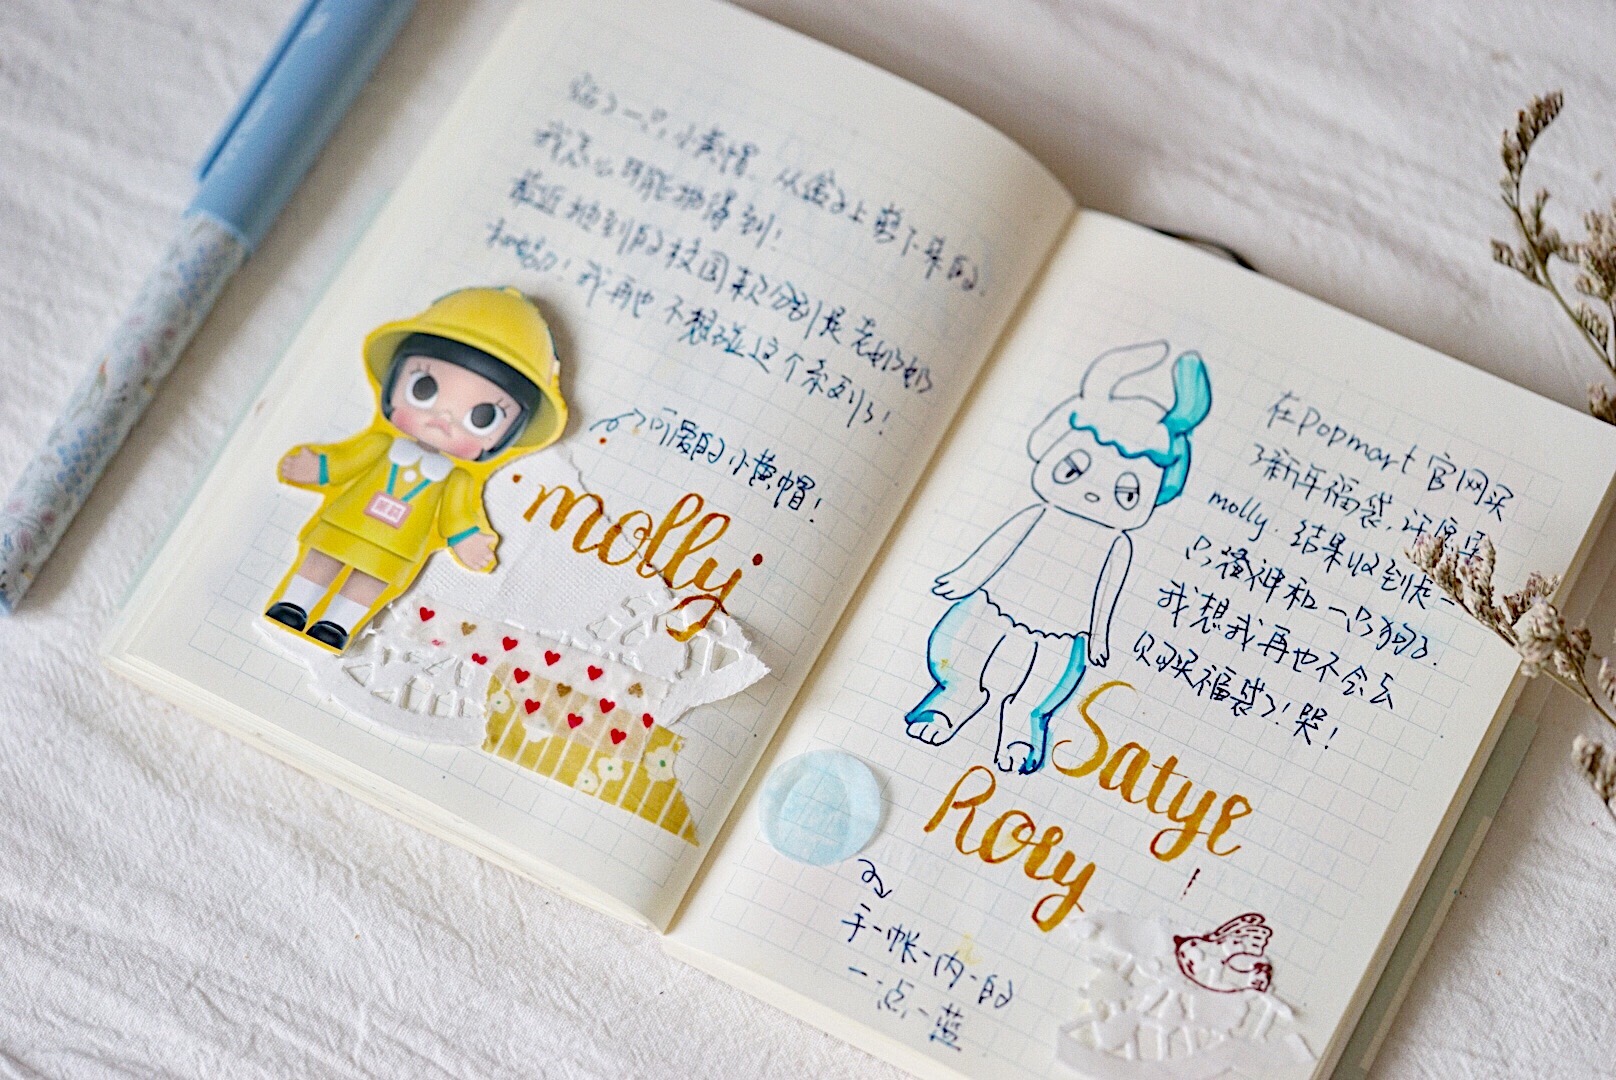 贴了一只小黄帽. 从盒子上剪下来的.
我怎么可能抽得到!
最近抽到的校园款分别是老奶奶
和! 我再也不想碰这个系列了!
可爱的小黄帽!
molly
在popmart官网买
了新年福袋, 许愿是
molly. 结果收到代一
只潘神和一只狗了.
我想我再也不会去
买福袋了! 哭!
Satye
Rory
手-帐-内-的
一点-蓝